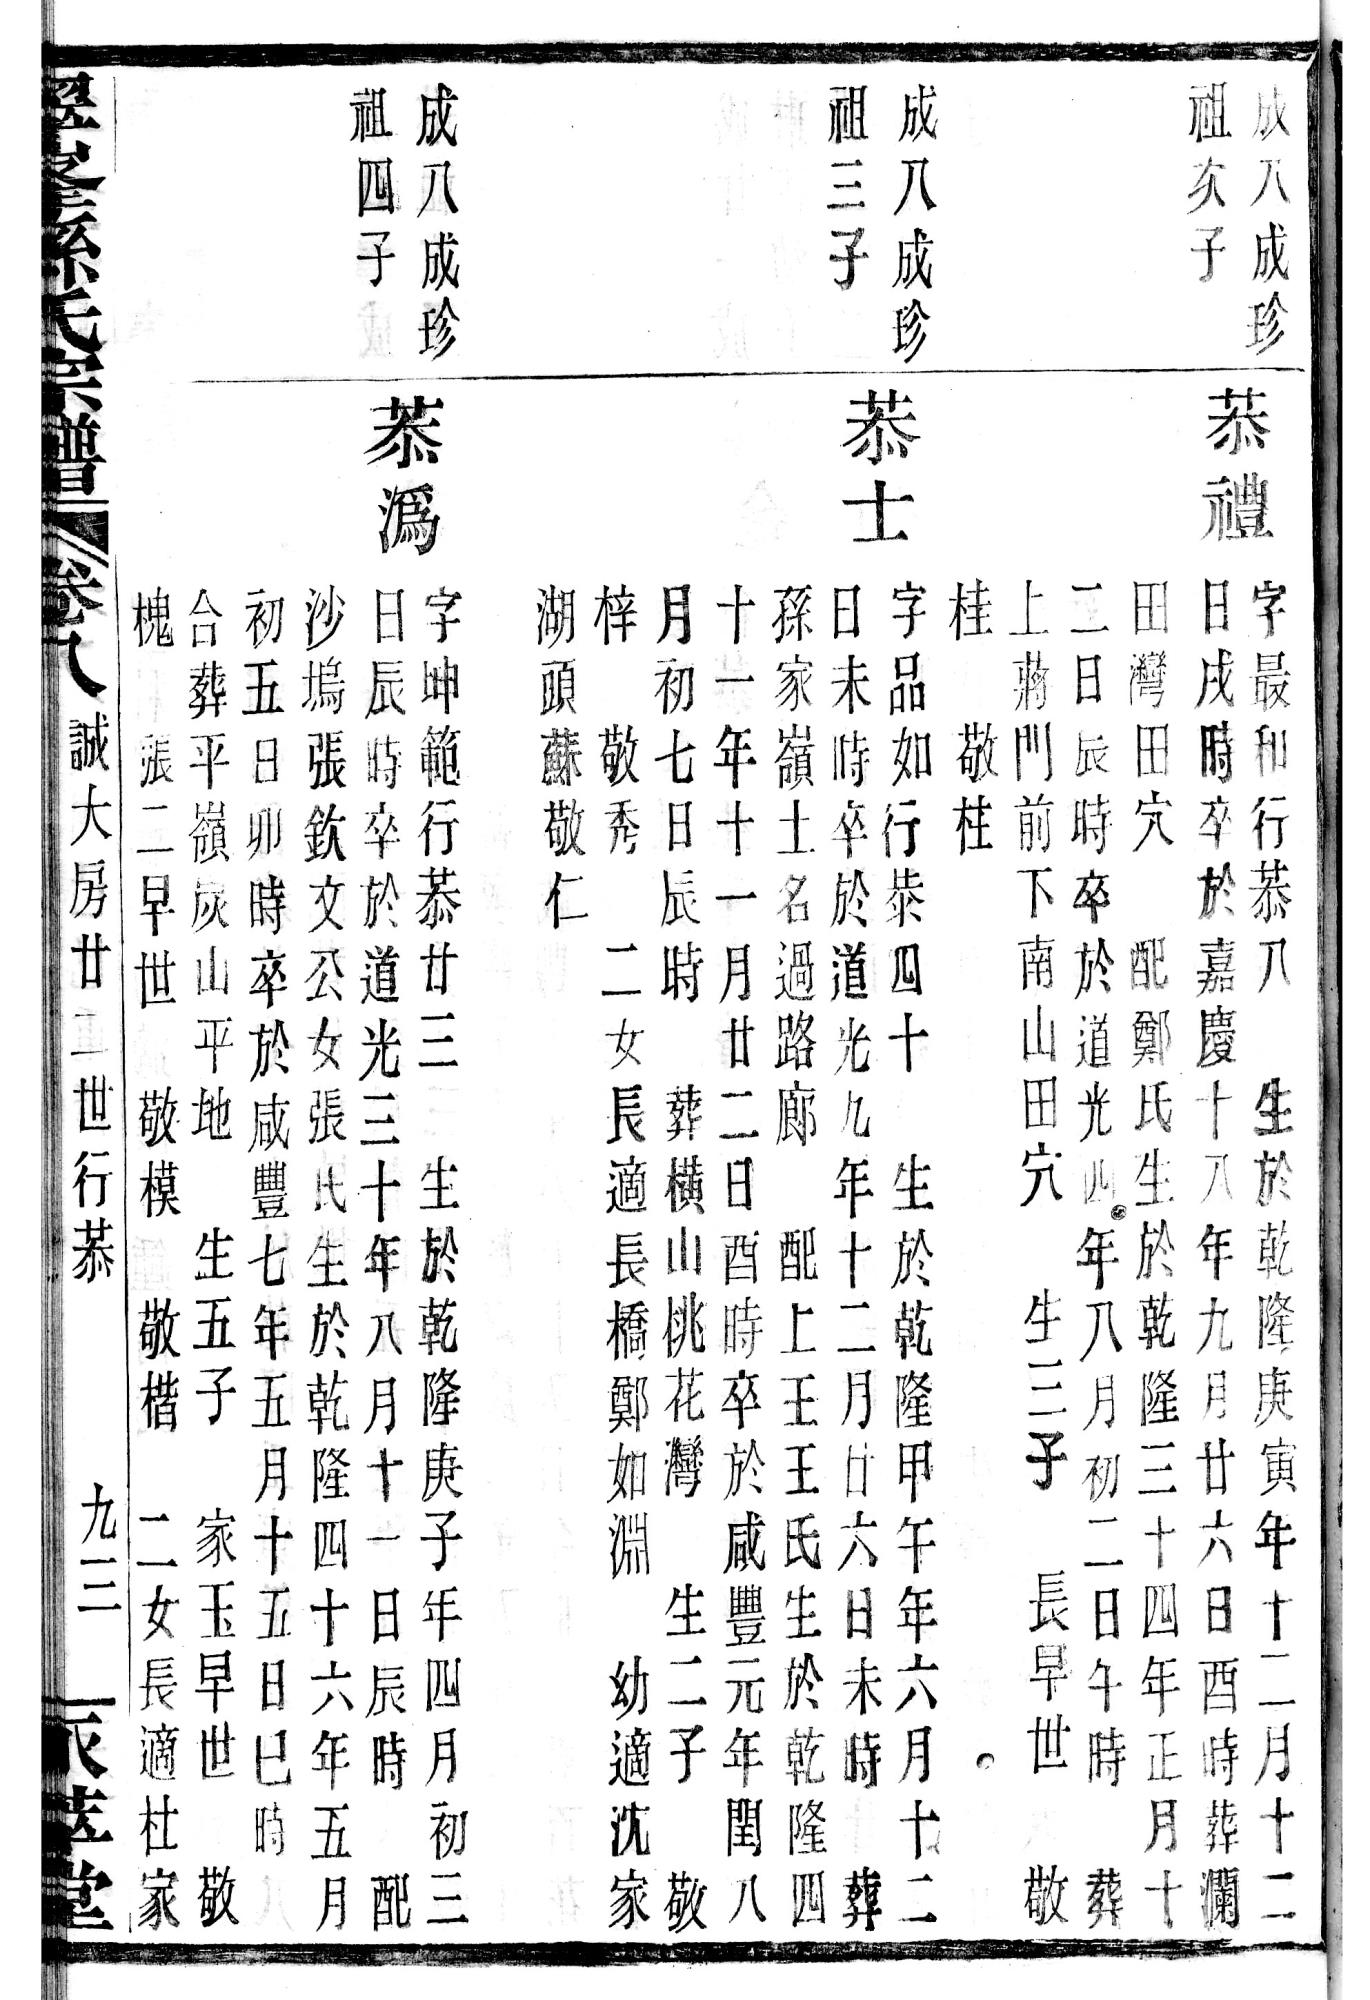 成八成珍
祖次子
恭禮
字最和行恭八　生於乾隆庚寅年十二月十二
日戌時卒於嘉慶十八年九月廿六日酉時葬瀾
田灣田穴　配鄭氏生於乾隆三十四年正月十
二日辰時卒於道光四年八月初二日午時　葬
上蔣門前下南山田穴　生三子　長早世　敬
桂　敬柱
成八成珍
祖三子
恭士
字品如行恭四十　生於乾隆甲午年六月十二
日未時卒於道光九年十二月廿六日未時　葬
孫家嶺土名過路廊　配上王王氏生於乾隆四
十一年十一月廿二日酉時卒於咸豐元年閏八
月初七日辰時　葬橫山桃花灣　生二子　敬
梓　敬秀　二女長適長橋鄭如淵　幼適沈家
湖頭蘇敬仁
成八成珍
祖四子
恭溈
字坤範行恭廿三　生於乾隆庚子年四月初三
日辰時卒於道光三十年八月十一日辰時　配
沙塢張欽文公女張氏生於乾隆四十六年五月
初五日卯時卒於咸豐七年五月十五日巳時
合葬平嶺灰山平地　生五子　家玉早世　敬
槐　張二早世　敬模　敬楷　二女長適杜家
孫氏宗譜　卷八　誠大房廿二世行恭　九三　萃堂